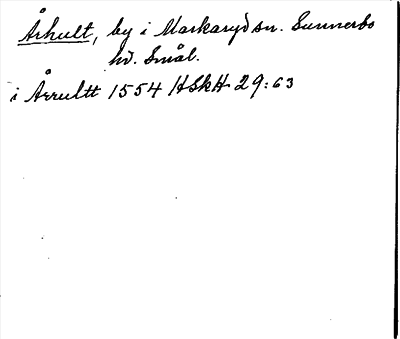 Århult, by i Markaryd sn. Sunnerbo
hd. Smål.
i Årrultt 1554 HSkH 29:63